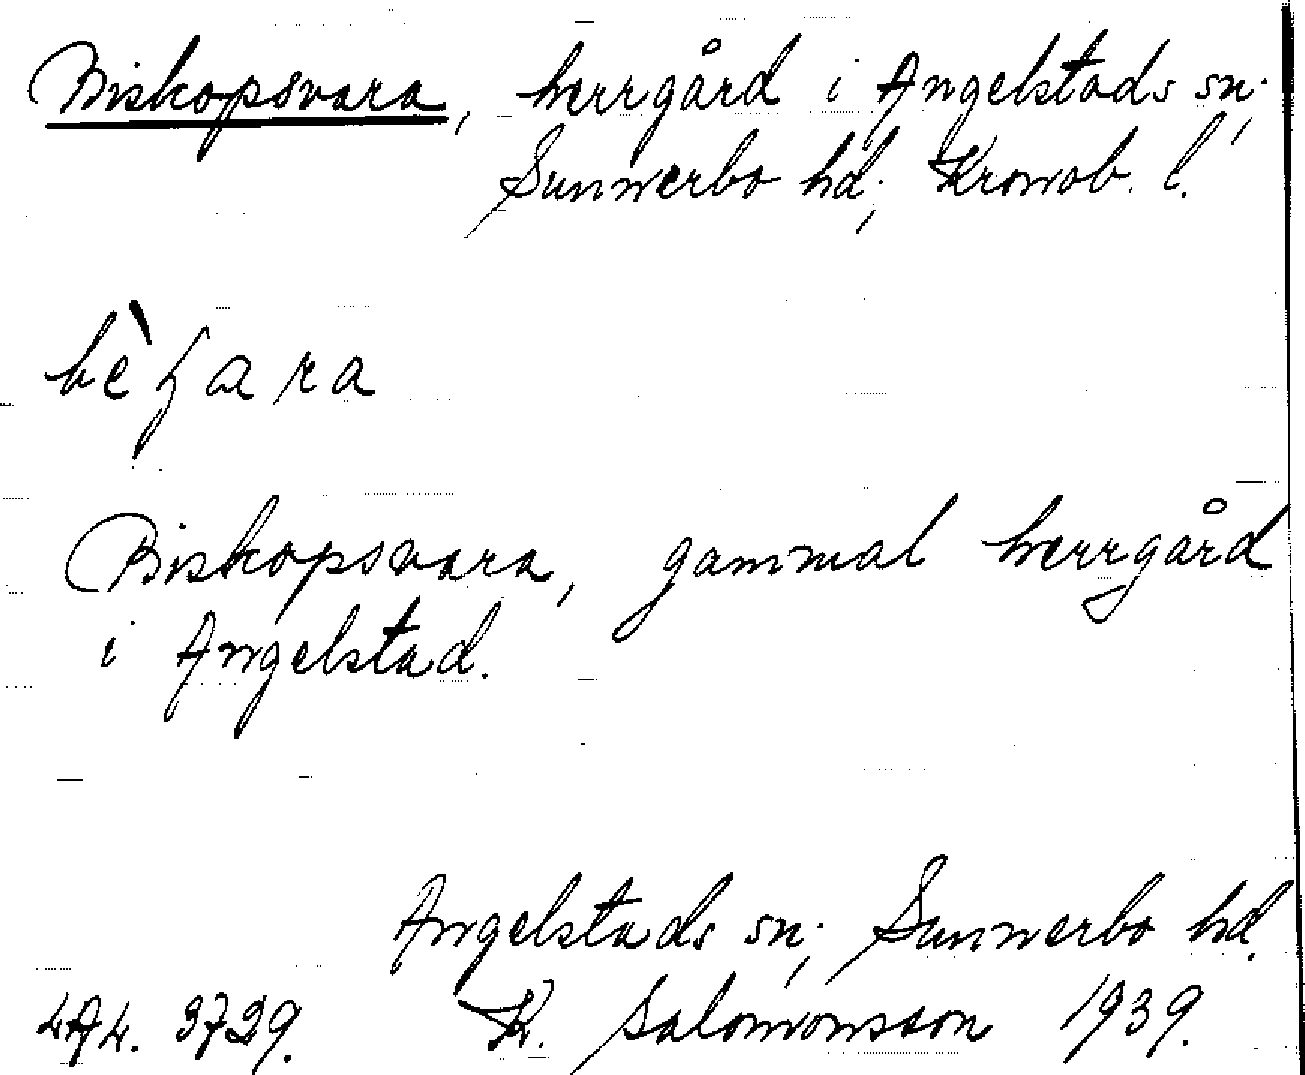 Biskopsvara, herrgård i Angelstads sn;
Sunnerbo hd; Kronob. l.
Biskopsvara, gammal herrgård
i Angelstad.
Angelstads sn; Sunnerbo hd.
3739. K. Salomonsson 1939.